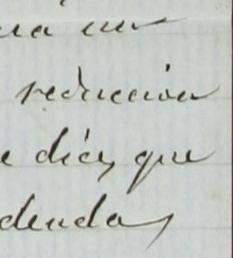 un
reduccion
e dicz que
deudas